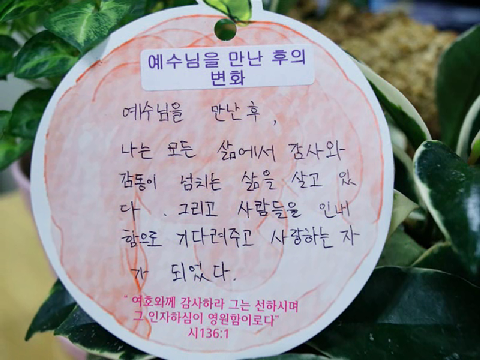 예수님을 만난 후의
변화
예수님을 만난 후,
나는 모든 삶에서 감사와
감동이 넘치는 삶을 살고 있
다. 그리고 사람들을 인내
함으로 기다려주고 사랑하는 자
가 되었다.
"여호와께 감사하라 그는 선하시며
그 인자하심이 영원함이로다"
시136:1